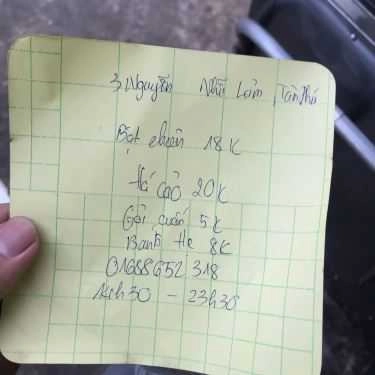 3, Nguyễn Nhữ Lãm, Tân Phú
Bột chiên 18K
Há cảo 20K
Gỏi cuốn 5K
Bánh Hẹ 8K
01688652318
14h30 - 23h30